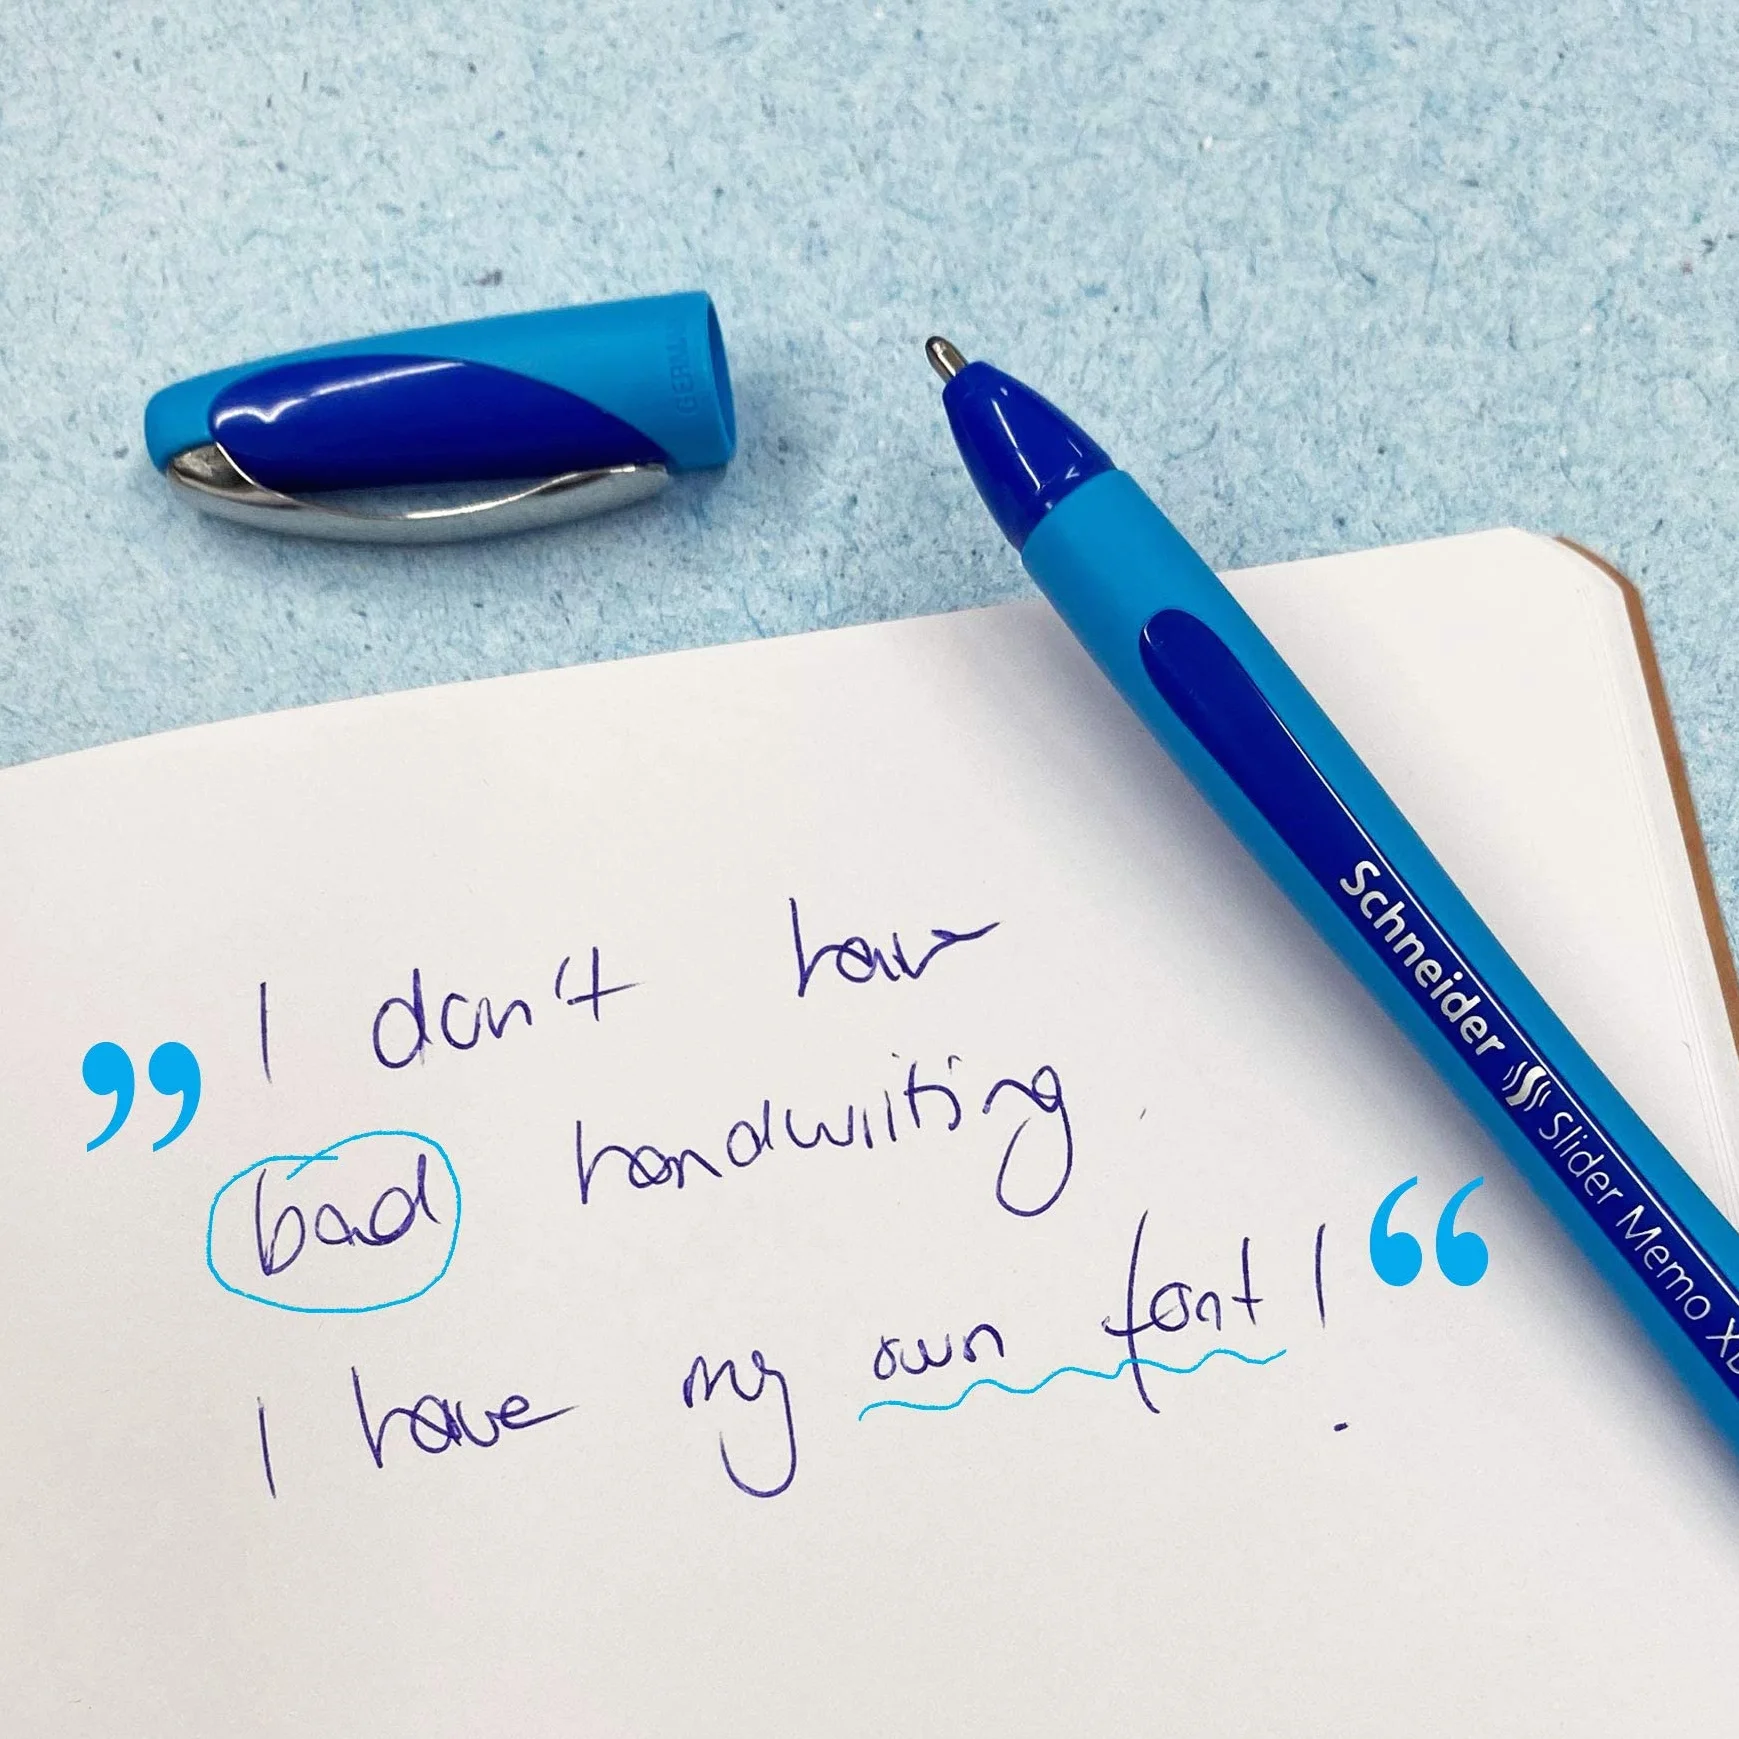 GERMA
Schneider Slider Memo X
” I don't have
bad handwriting.
I have my own font! “